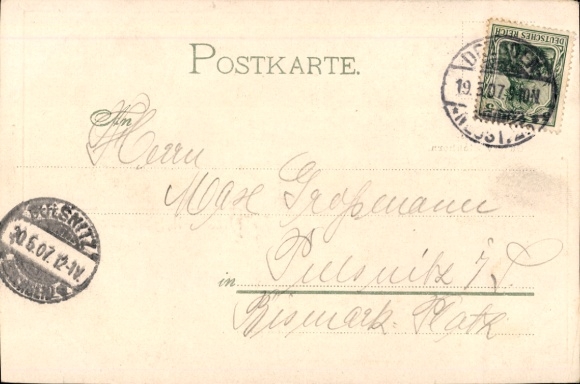 POSTKARTE.
DEUTSCHES REICH
19.5.07.
An
Herrn
Max Großmann
in Pulsnitz i/S.
Bismark-Platz
PULSNITZ
20.5.07.12-1N.